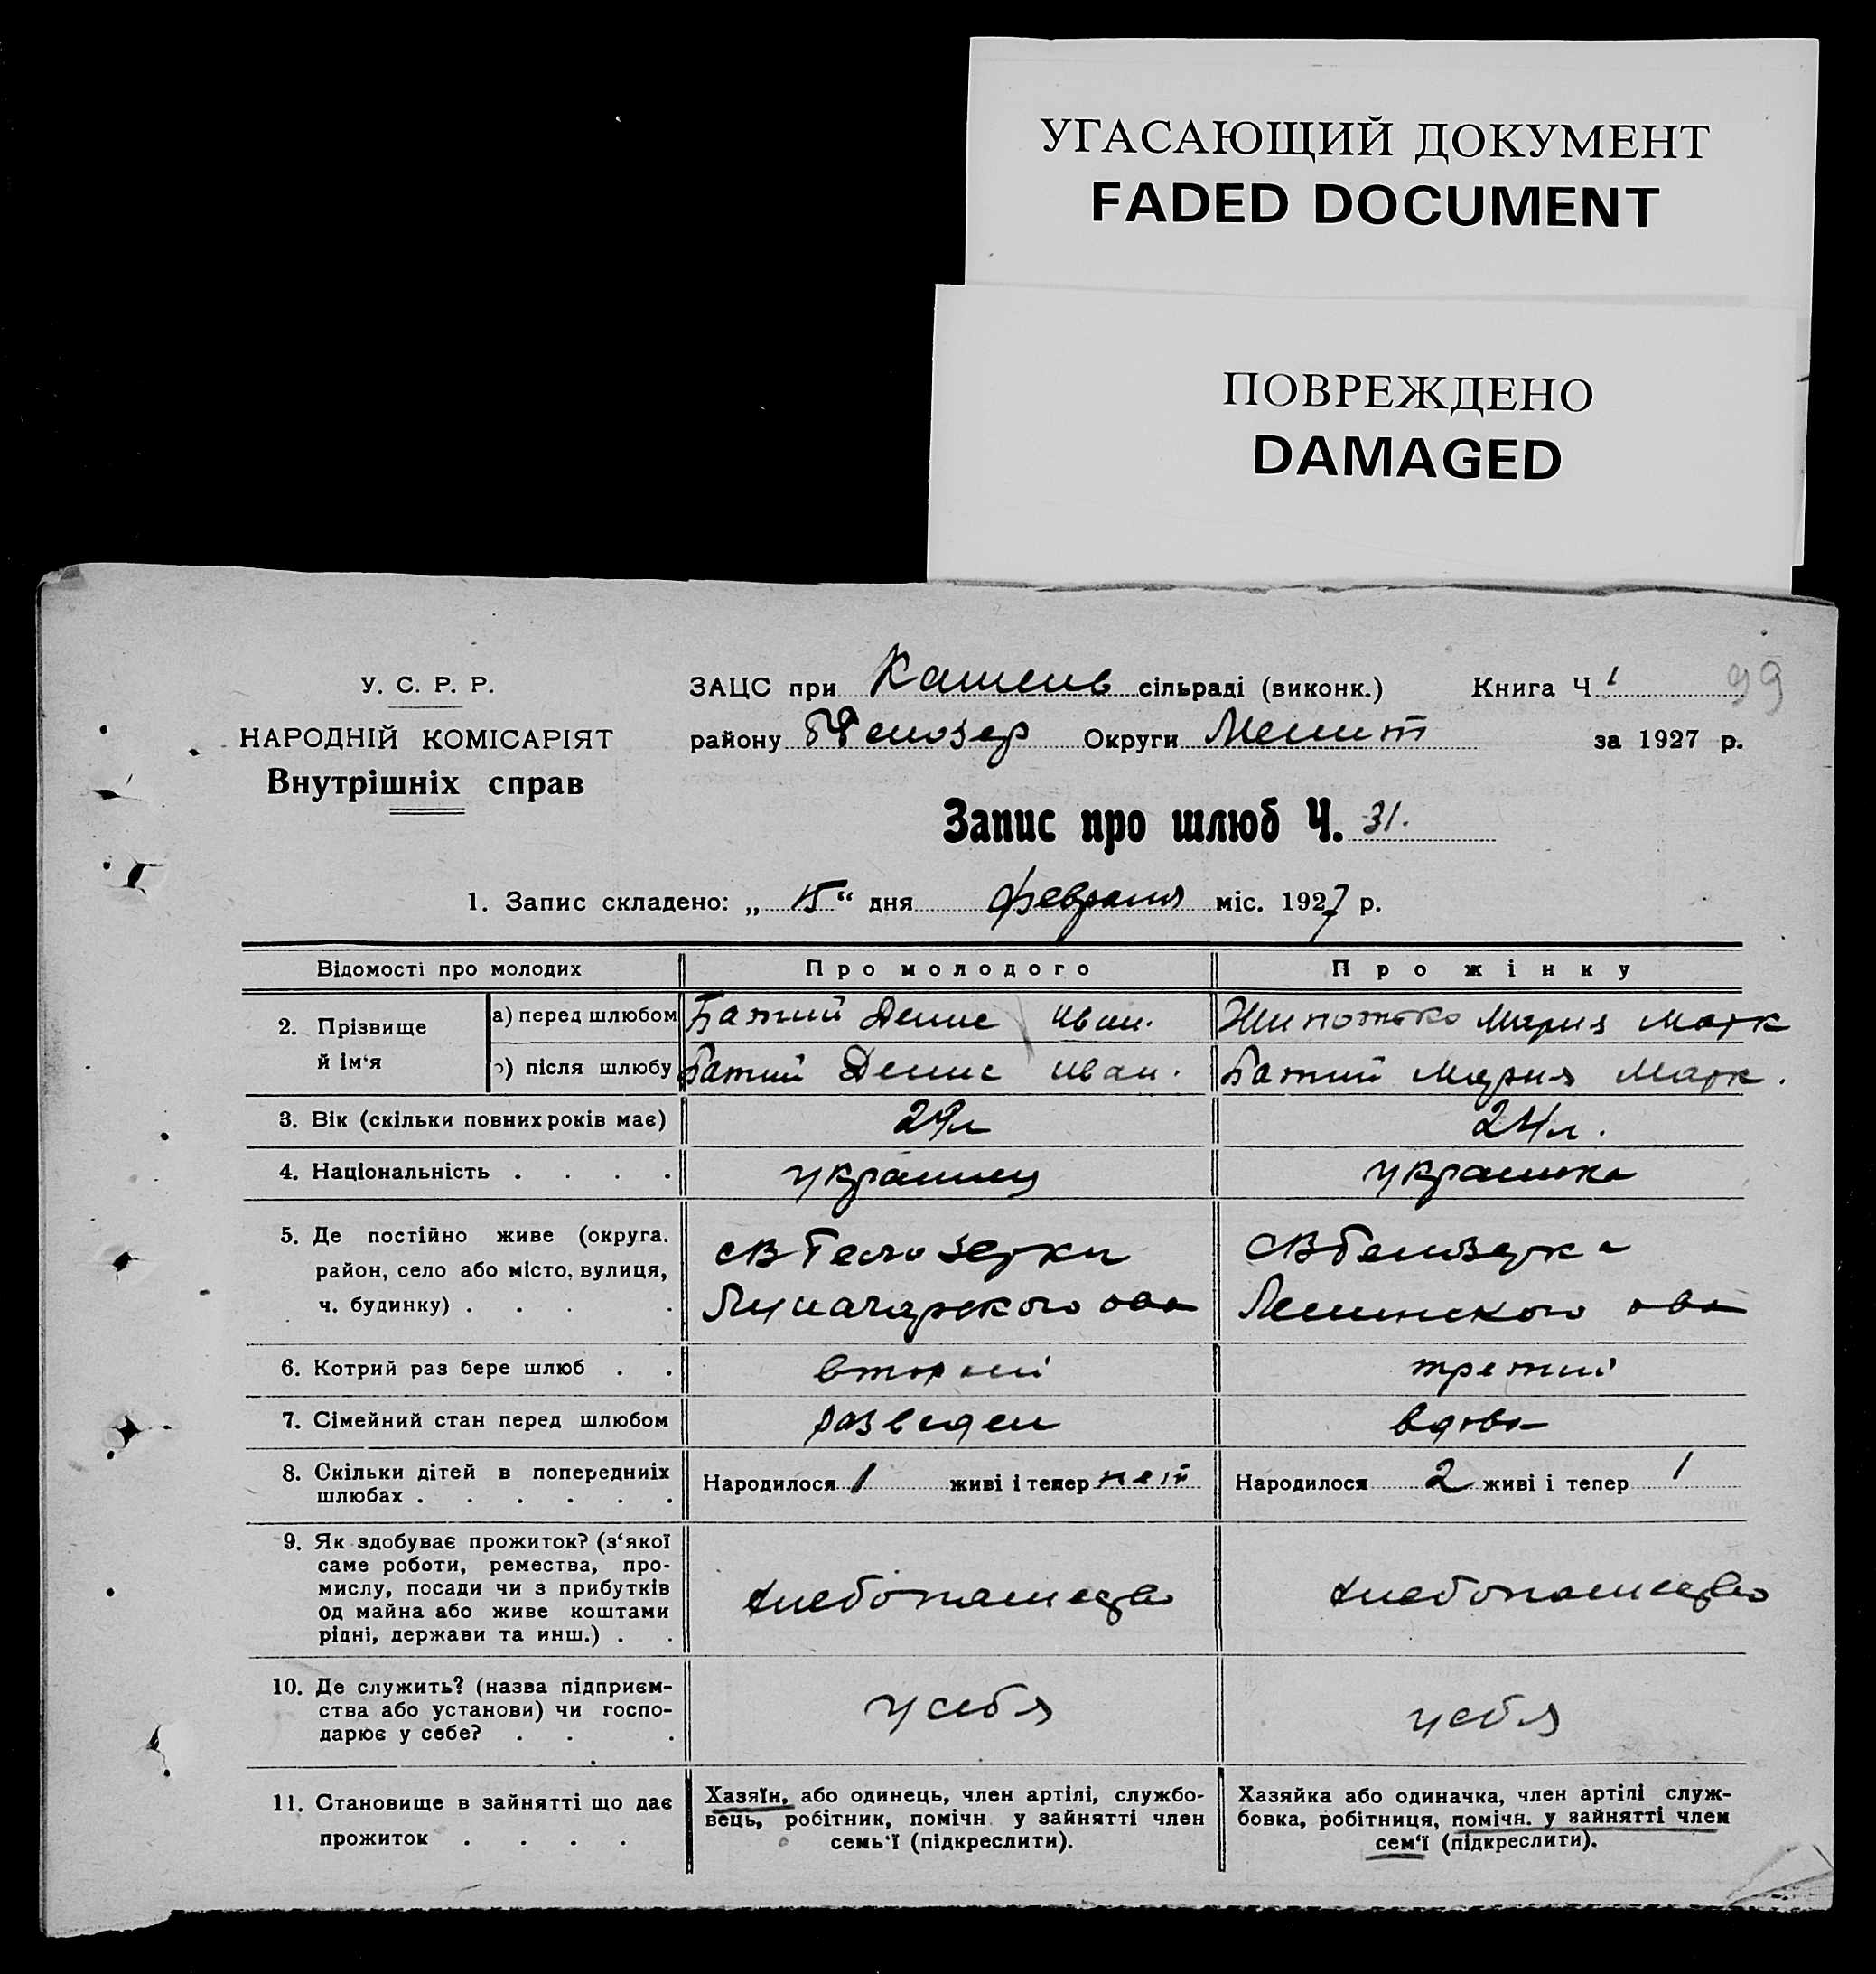 УГАСАЮЩИЙ ДОКУМЕНТ
FADED DOCUMENT
ПОВРЕЖДЕНО
DAMAGED
У. С. Р. Р.
НАРОДНІЙ КОМІСАРІЯТ
Внутрішніх справ
ЗАЦС при сільраді (виконк.) Книга Ч 1 99
району Округи Мелит за 1927 р.
Запис про шлюб Ч. 31.
1. Запис складено: „ 15 “ дня февраля міс. 1927 р.
Відомості про молодих Про молодого Про жінку
2. Прізвище й ім'я
а) перед шлюбом Батий Денис Иван. Мария Марк
б) після шлюбу Батий Денис Иван. Батий Мария Марк.
3. Вік (скільки повних років має) 29л 24л.
4. Національність . . . . украинец украинка
5. Де постійно живе (округа.
район, село або місто, вулиця,
ч. будинку) . . . .
св Белозерки св Белозерка
Луначарского ова Ленинского ова
6. Котрий раз бере шлюб . . второй третий
7. Сімейний стан перед шлюбом разведен вдова
8. Скільки дітей в попередниіх
шлюбах . . . . . .
Народилося 1 живі і тепер нет Народилося 2 живі і тепер 1
9. Як здобуває прожиток? (з'якої
саме роботи, ремества, про-
мислу, посади чи з прибутків
од майна або живе коштами
рідні, держави та инш.) . .
хлебопашество хлебопашество
10. Де служить? (назва підприєм-
ства або установи) чи госпо-
дарює у себе? . . .
у себя у себя
11. Становище в зайнятті що дає
прожиток . . . .
Хазяїн, або одинець, член артілі, службо-
вець, робітник, помічн. у зайнятті член
семь'ї (підкреслити).
Хазяйка або одиначка, член артілі служ-
бовка, робітниця, помічн. у зайнятті член
сем'ї (підкреслити).